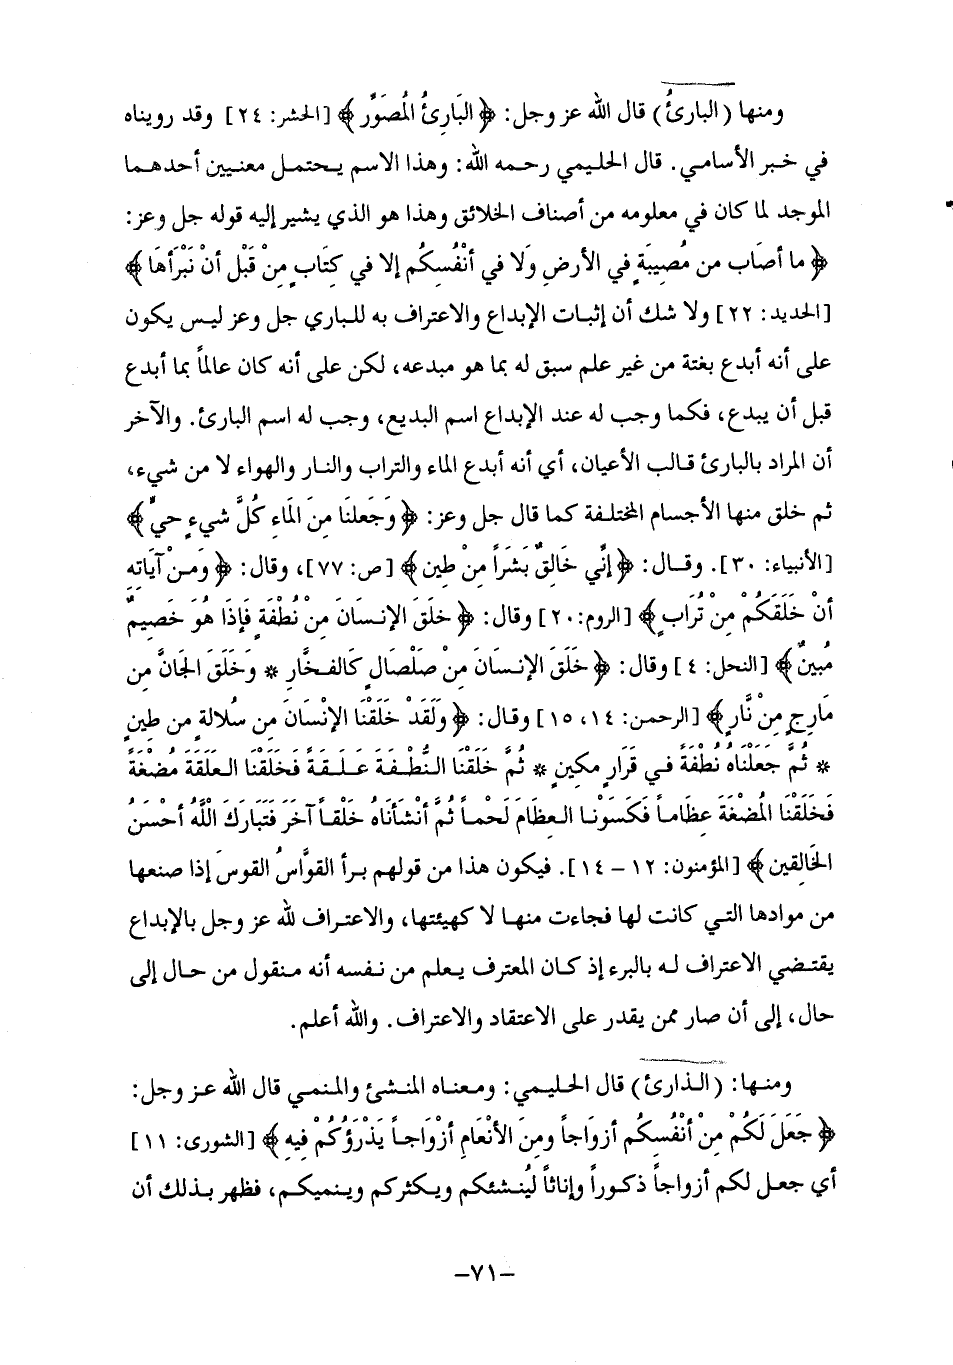 ومنها (البارئُ) قال الله عز وجل: ﴿البَارِئُ المُصَوِّر﴾ [الحشر: ٢٤] وقد رويناه
في خبر الأسامي. قال الحليمي رحمه الله: وهذا الاسم يحتمل معنيين أحدهما
الموجد لما كان في معلومه من أصناف الخلائق وهذا هو الذي يشير إليه قوله جل وعز:
﴿ما أصَاب من مُصِيبَةٍ في الأرضِ وَلا في أنْفُسِكُم إلا في كِتَابٍ مِنْ قَبْل أنْ نَبْرَأهَا﴾
[الحديد: ٢٢] ولا شك أن إثبات الإبداع والاعتراف به للباري جل وعز ليس يكون
على أنه أبدع بغتة من غير علم سبق له بما هو مبدعه، لكن على أنه كان عالماً بما أبدع
قبل أن يبدع، فكما وجب له عند الإبداع اسم البديع، وجب له اسم البارئ. والآخر
أن المراد بالبارئ قالب الأعيان، أي أنه أبدع الماء والتراب والنار والهواء لا من شيء،
ثم خلق منها الأجسام المختلفة كما قال جل وعز: ﴿وَجَعلنَا مِنَ المَاءِ كُلَّ شيءٍ حيٍّ﴾
[الأنبياء: ٣٠]. وقال: ﴿إنِّي خَالِقٌ بَشَرَاً مِنْ طِين﴾ [ص: ٧٧]، وقال: ﴿وَمنْ آيَاتِه
أنْ خَلَقَكُمْ مِنْ تُرَابٍ﴾ [الروم:٢٠] وقال: ﴿خلَقَ الإنسَانَ مِنْ نُطْفَةٍ فَإذَا هُوَ خَصِيمٌ
مُبينٌ﴾ [النحل: ٤] وقال: ﴿خَلَقَ الإنسَانَ مِنْ صَلْصَالٍ كَالفخَّارِ * وَخَلَقَ الجَانَّ مِن
مَارِجٍ مِنْ نَّارٍ﴾ [الرحمن: ١٤، ١٥] وقال: ﴿وَلَقَدْ خَلَقْنَا الإنْسَانَ مِن سُلالةٍ مِن طينٍ
* ثُمَّ جَعَلْنَاهُ نُطْفَةً في قَرَارٍ مكينٍ * ثُمَّ خَلَقْنَا النُّطْفَةَ عَلَقَةً فَخلَقْنَا العلَقَةَ مُضْغَةً
فَخَلَقْنَا المُضْغَةَ عِظَاماً فَكَسَوْنا العِظَامَ لَحْماً ثُمَّ أنْشَأنَاهُ خلْقاً آخرَ فَتَبَارَكَ اللَّهُ أحْسَنُ
الخَالِقين﴾ [المؤمنون: ١٢ – ١٤]. فيكون هذا من قولهم برأ القوَّاسُ القوسَ إذا صنعها
من موادها التي كانت لها فجاءت منها لا كهيئتها، والاعتراف لله عز وجل بالإبداع
يقتضي الاعتراف له بالبرء إذ كان المعترف يعلم من نفسه أنه منقول من حال إلى
حال، إلى أن صار ممن يقدر على الاعتقاد والاعتراف. والله أعلم.
ومنها: (الذارئ) قال الحليمي: ومعناه المنشئ والمنمي قال الله عز وجل:
﴿جَعَلَ لَكُمْ مِنْ أنْفُسِكُم أزوَاجاً ومِنَ الأنْعَامِ أزْوَاجاً يَذْرَؤُكُمْ فِيهِ﴾ [الشورى: ١١]
أي جعل لكم أزواجاً ذكوراً وإناثاً ليُنشئكم ويكثركم وينميكم، فظهر بذلك أن
–٧١–